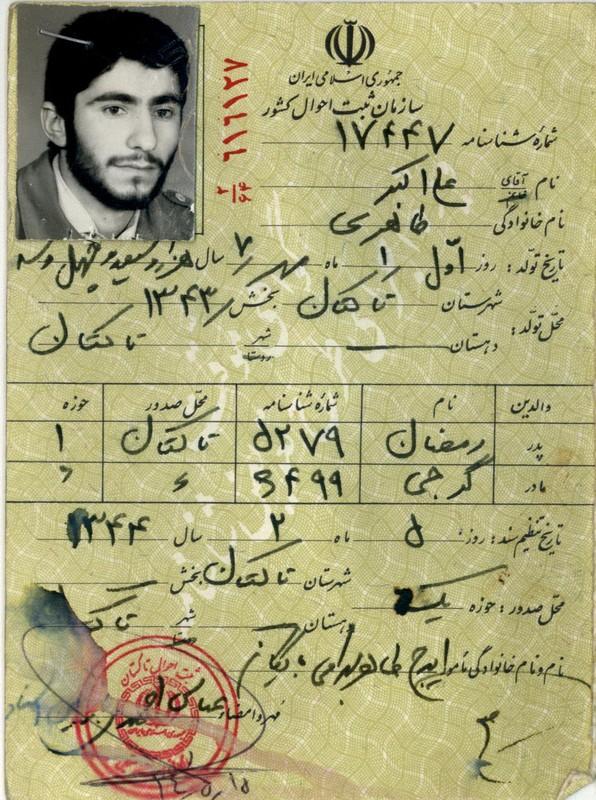 جمهوری اسلامی ایران
سازمان ثبت احوال کشور
۶۱۶۱۲۷
شماره شناسنامه ۱۷۴۴۷
نام آقای علی اکبر
نام خانوادگی طاهری
تاریخ تولد: روز اول ۱ ماه مهر ۷ سال هزار و سیصد و چهل و سه
۱۳۴۳
محل تولد: شهرستان تاکستان بخش
دهستان شهر روستا تاکستان
والدین نام شماره شناسنامه محل صدور حوزه
پدر رمضان ۵۲۷۹ تاکستان ۱
مادر گرجی
تاریخ تنظیم سند: روز ۵ ماه ۲ سال ۱۳۴۴
محل صدور: حوزه یک شهرستان تاکستان بخش
دهستان شهر
نام و نام خانوادگی مأمور ایرج
مهر و امضاء